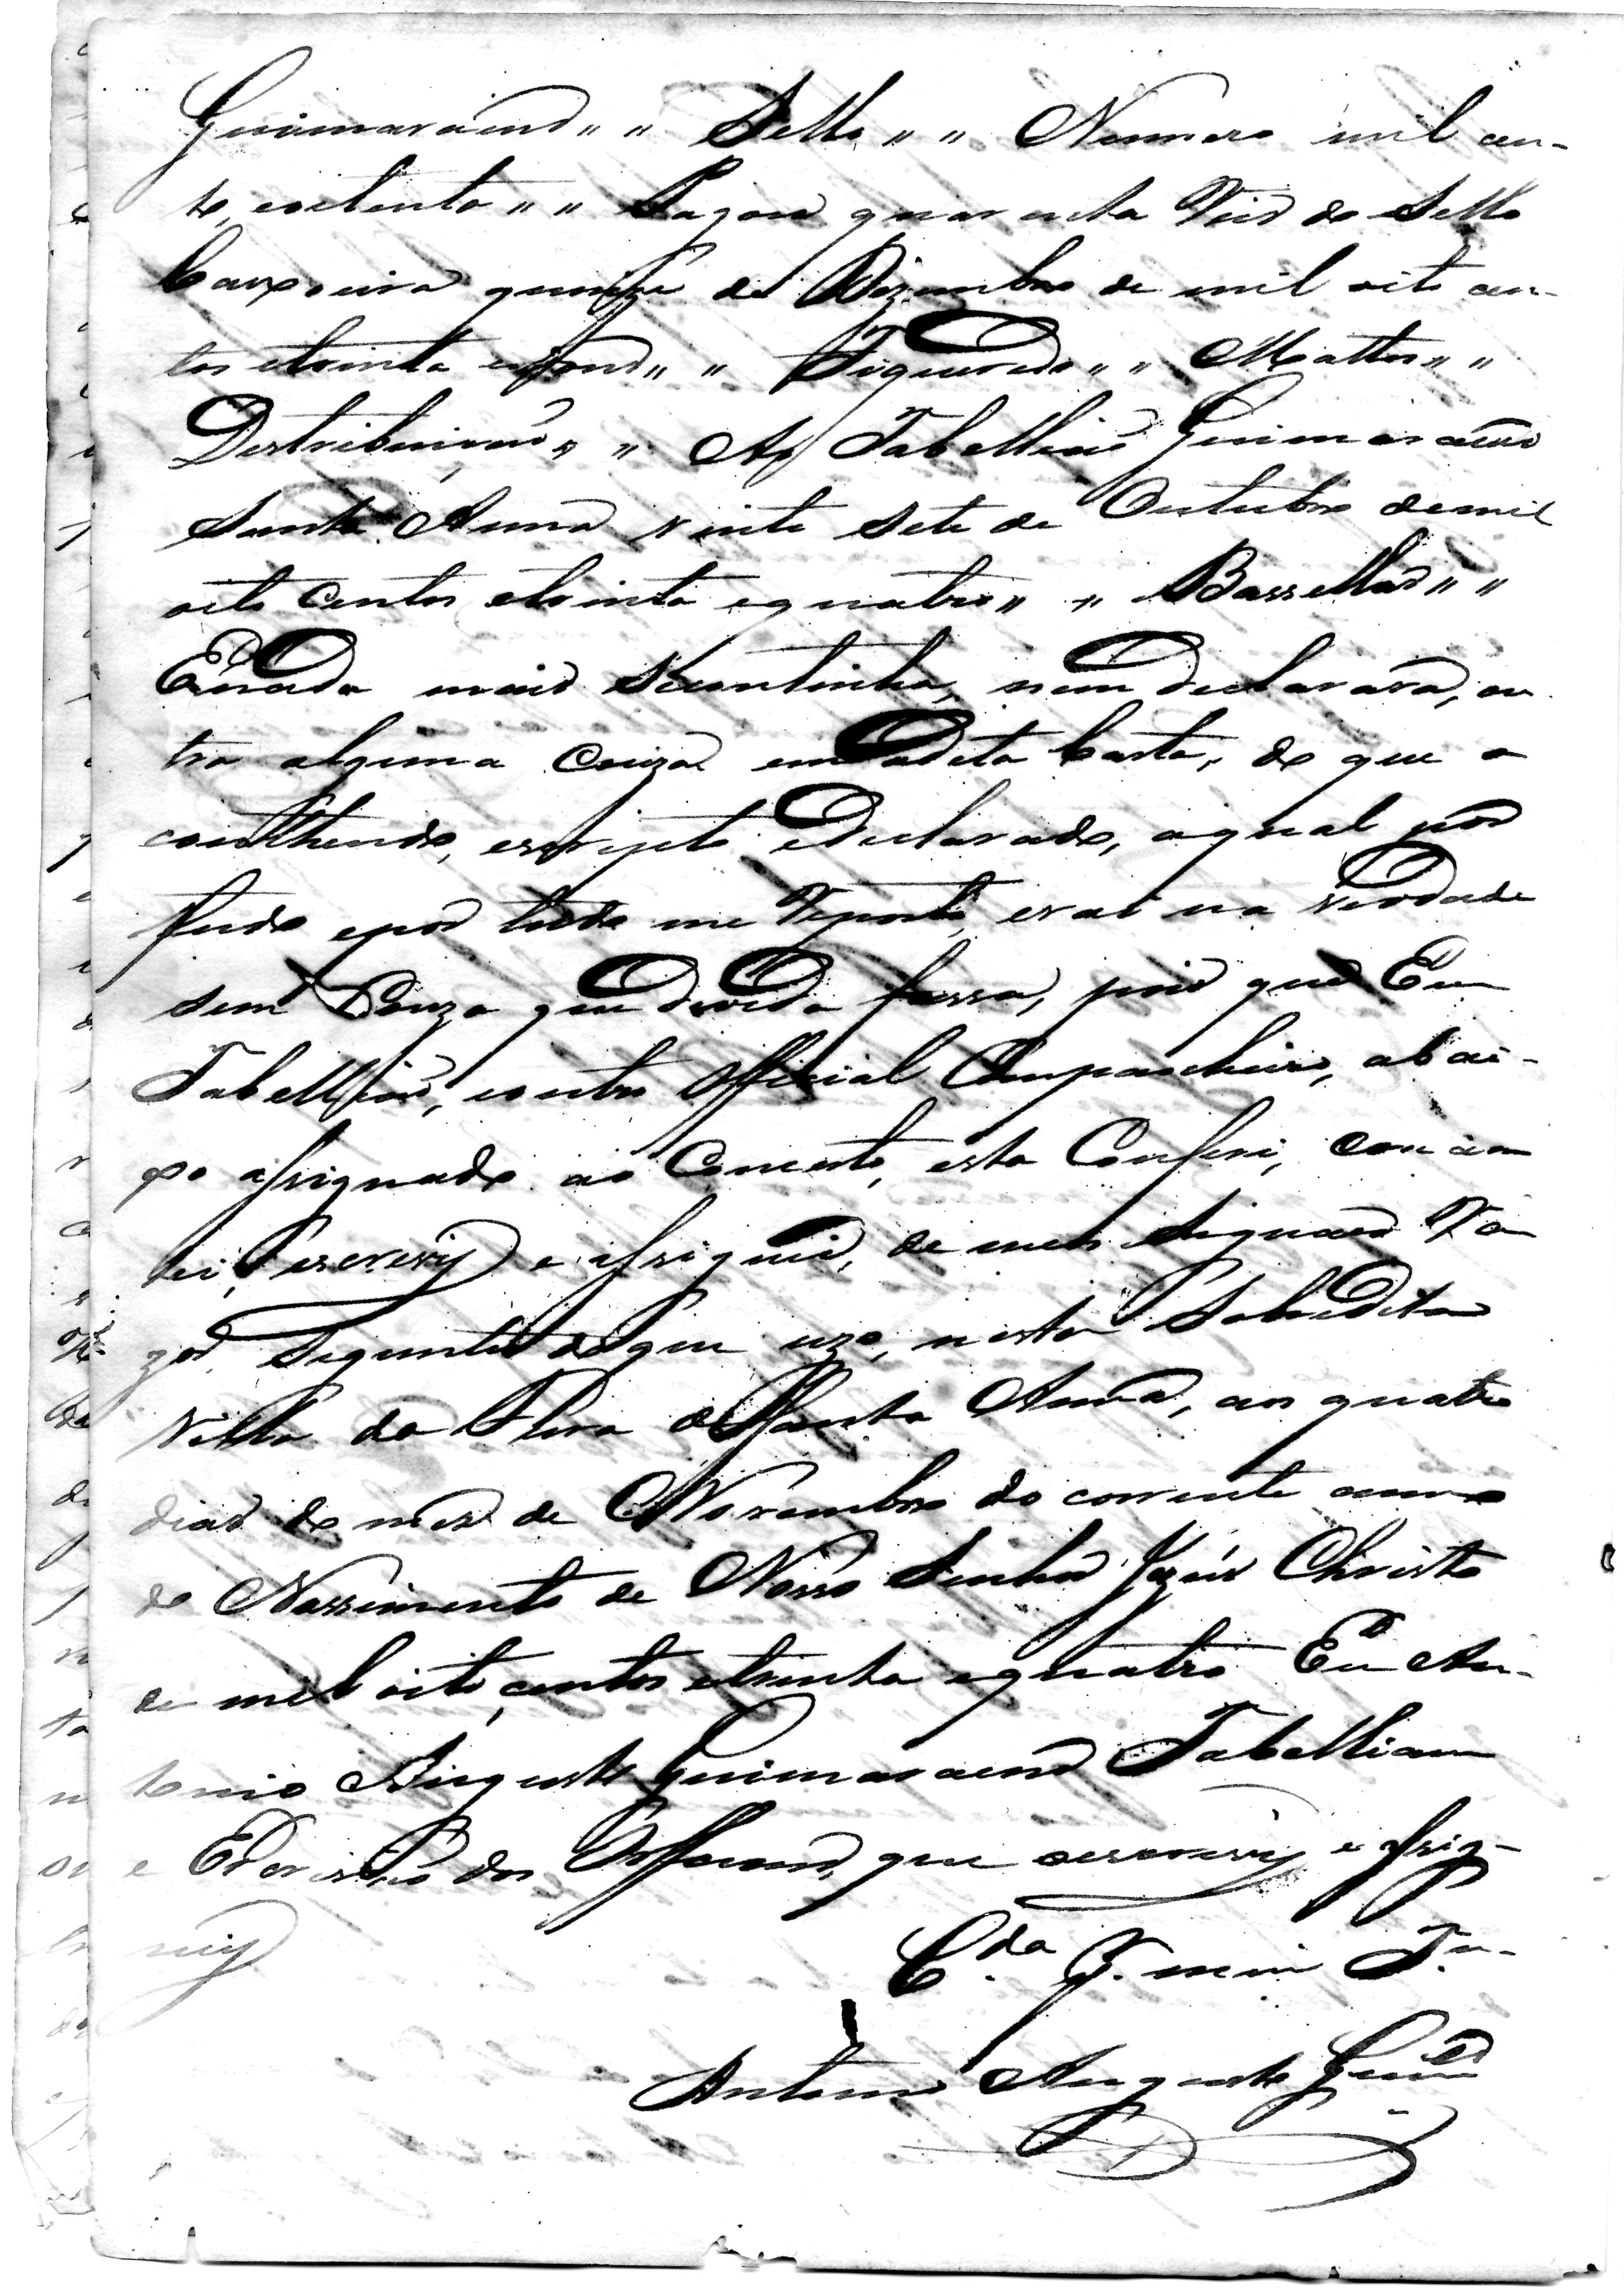 Guimaraens " " Sello " " Numero mil cen-
to, eoitenta " " Pagou quarenta Reis do Sello
Caxoeira quinze de Dezembro de mil oito cen-
tos etrinta " " Figueredo " " Mattos " "
Destribuicaõ " " Ao Tabelliaõ Guimaraens
Santa Anna vinte sete de Outubro demil
oito centos etrinta equatro " " Barsellar " "
Enada mais secontinha, nem declarava, ou
tra alguma Couza em adita Carta, do que o
conthendo, escripto edeclarado, aqual por
tudo epor tudo me reporto, evai na verdade
sem Couza que duvida fassa, pois que Eu
Tabelliaõ, eoutro Official Companheiro, abai-
xo assignado ao Concerto, esta Conferi, concer
tei, Sescrevy e assignei, de meos Signaes Ra
zos, Seguintes deque uzo, nesta Sobredita
Villa da Feira de Santa Anna, aos quatro
dias do mes de Novembro do corrente anno
do Nassimento de Nosso Senhor Jezus Christo
de mil oito centos etrinta equatro Eu An-
tonio Augusto Guimaraens Tabelliam
e Escrivaõ dos Orffaons, que oescrevy e assig-
ney
C.da P. mim T.am
Antonio Augusto Guim.es